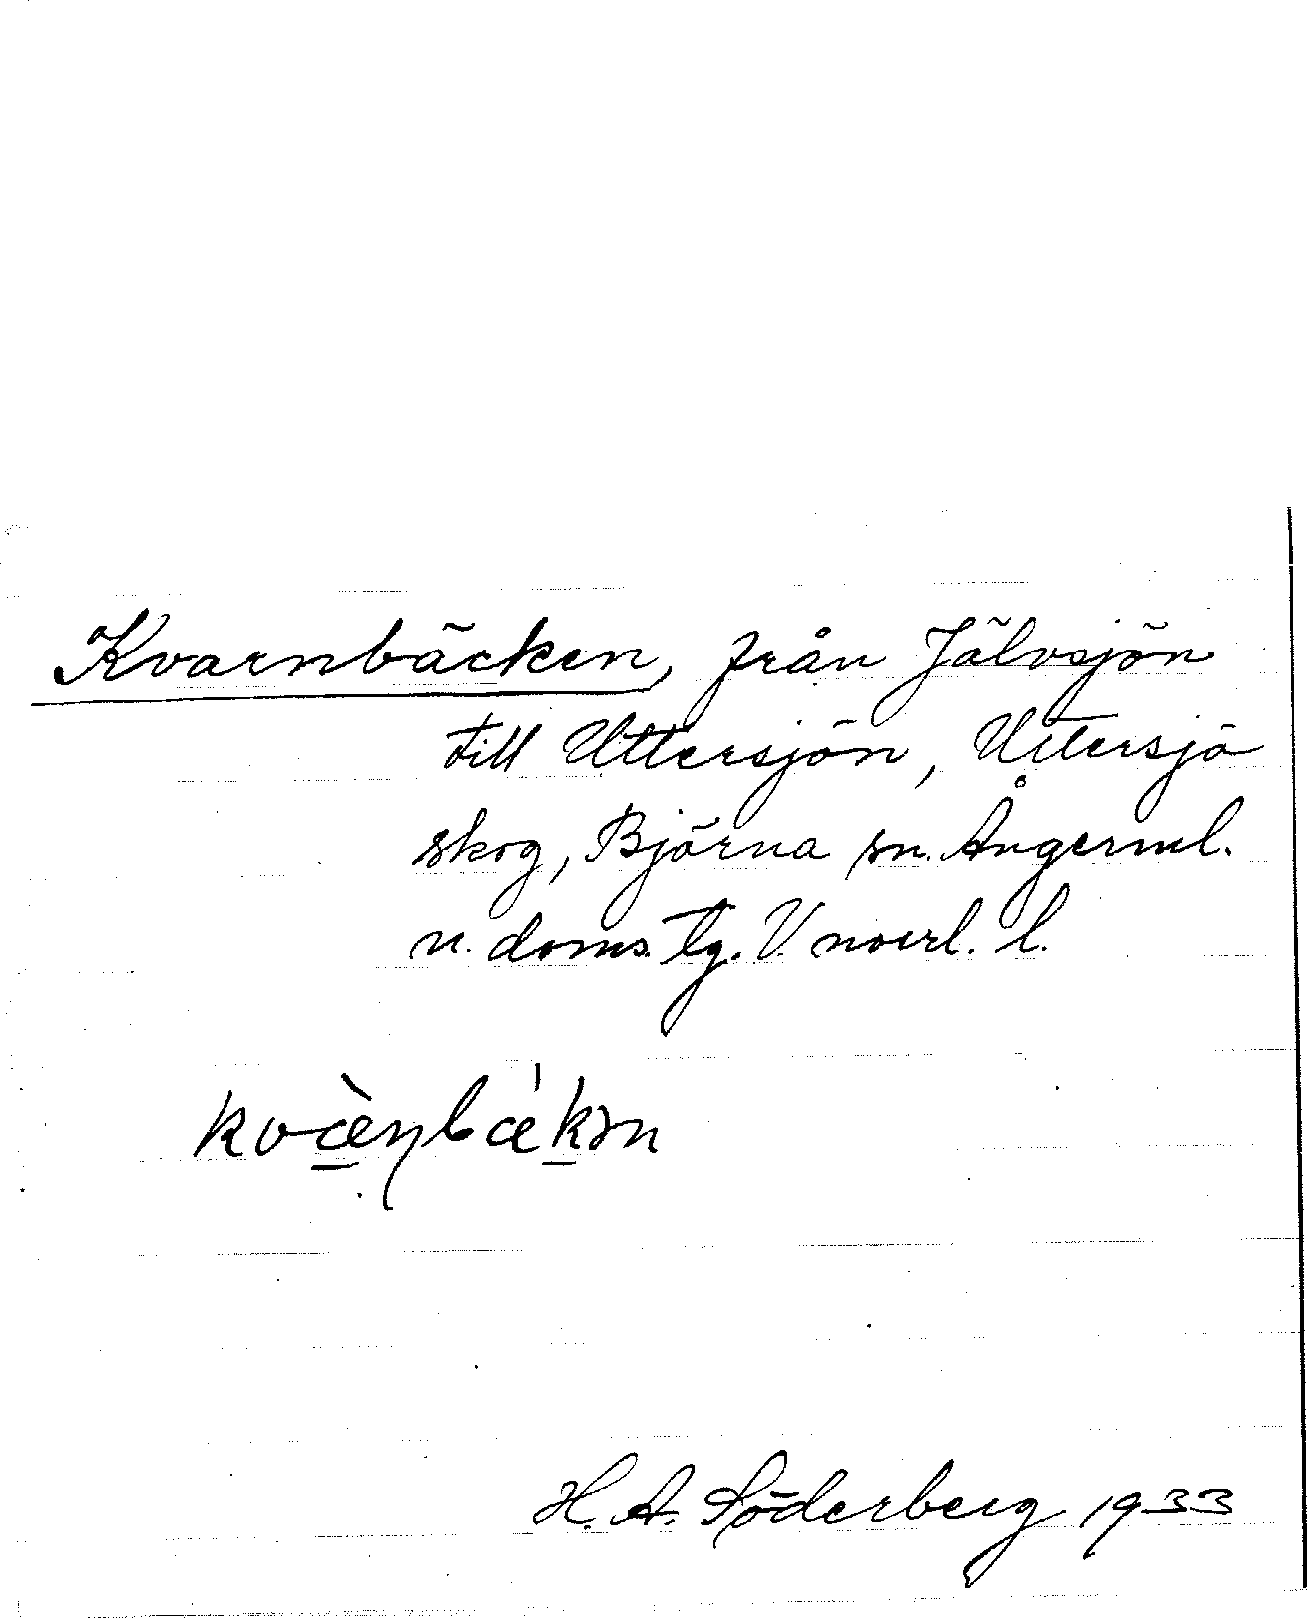 Kvarnbäcken, från Jälvsjön
till Uttersjön, Uttersjö
skog, Björna sn. Ångerml.
n. doms. tg. V. norrl. l.
kvæ̀ɳbækən
H. A. Söderberg 1933